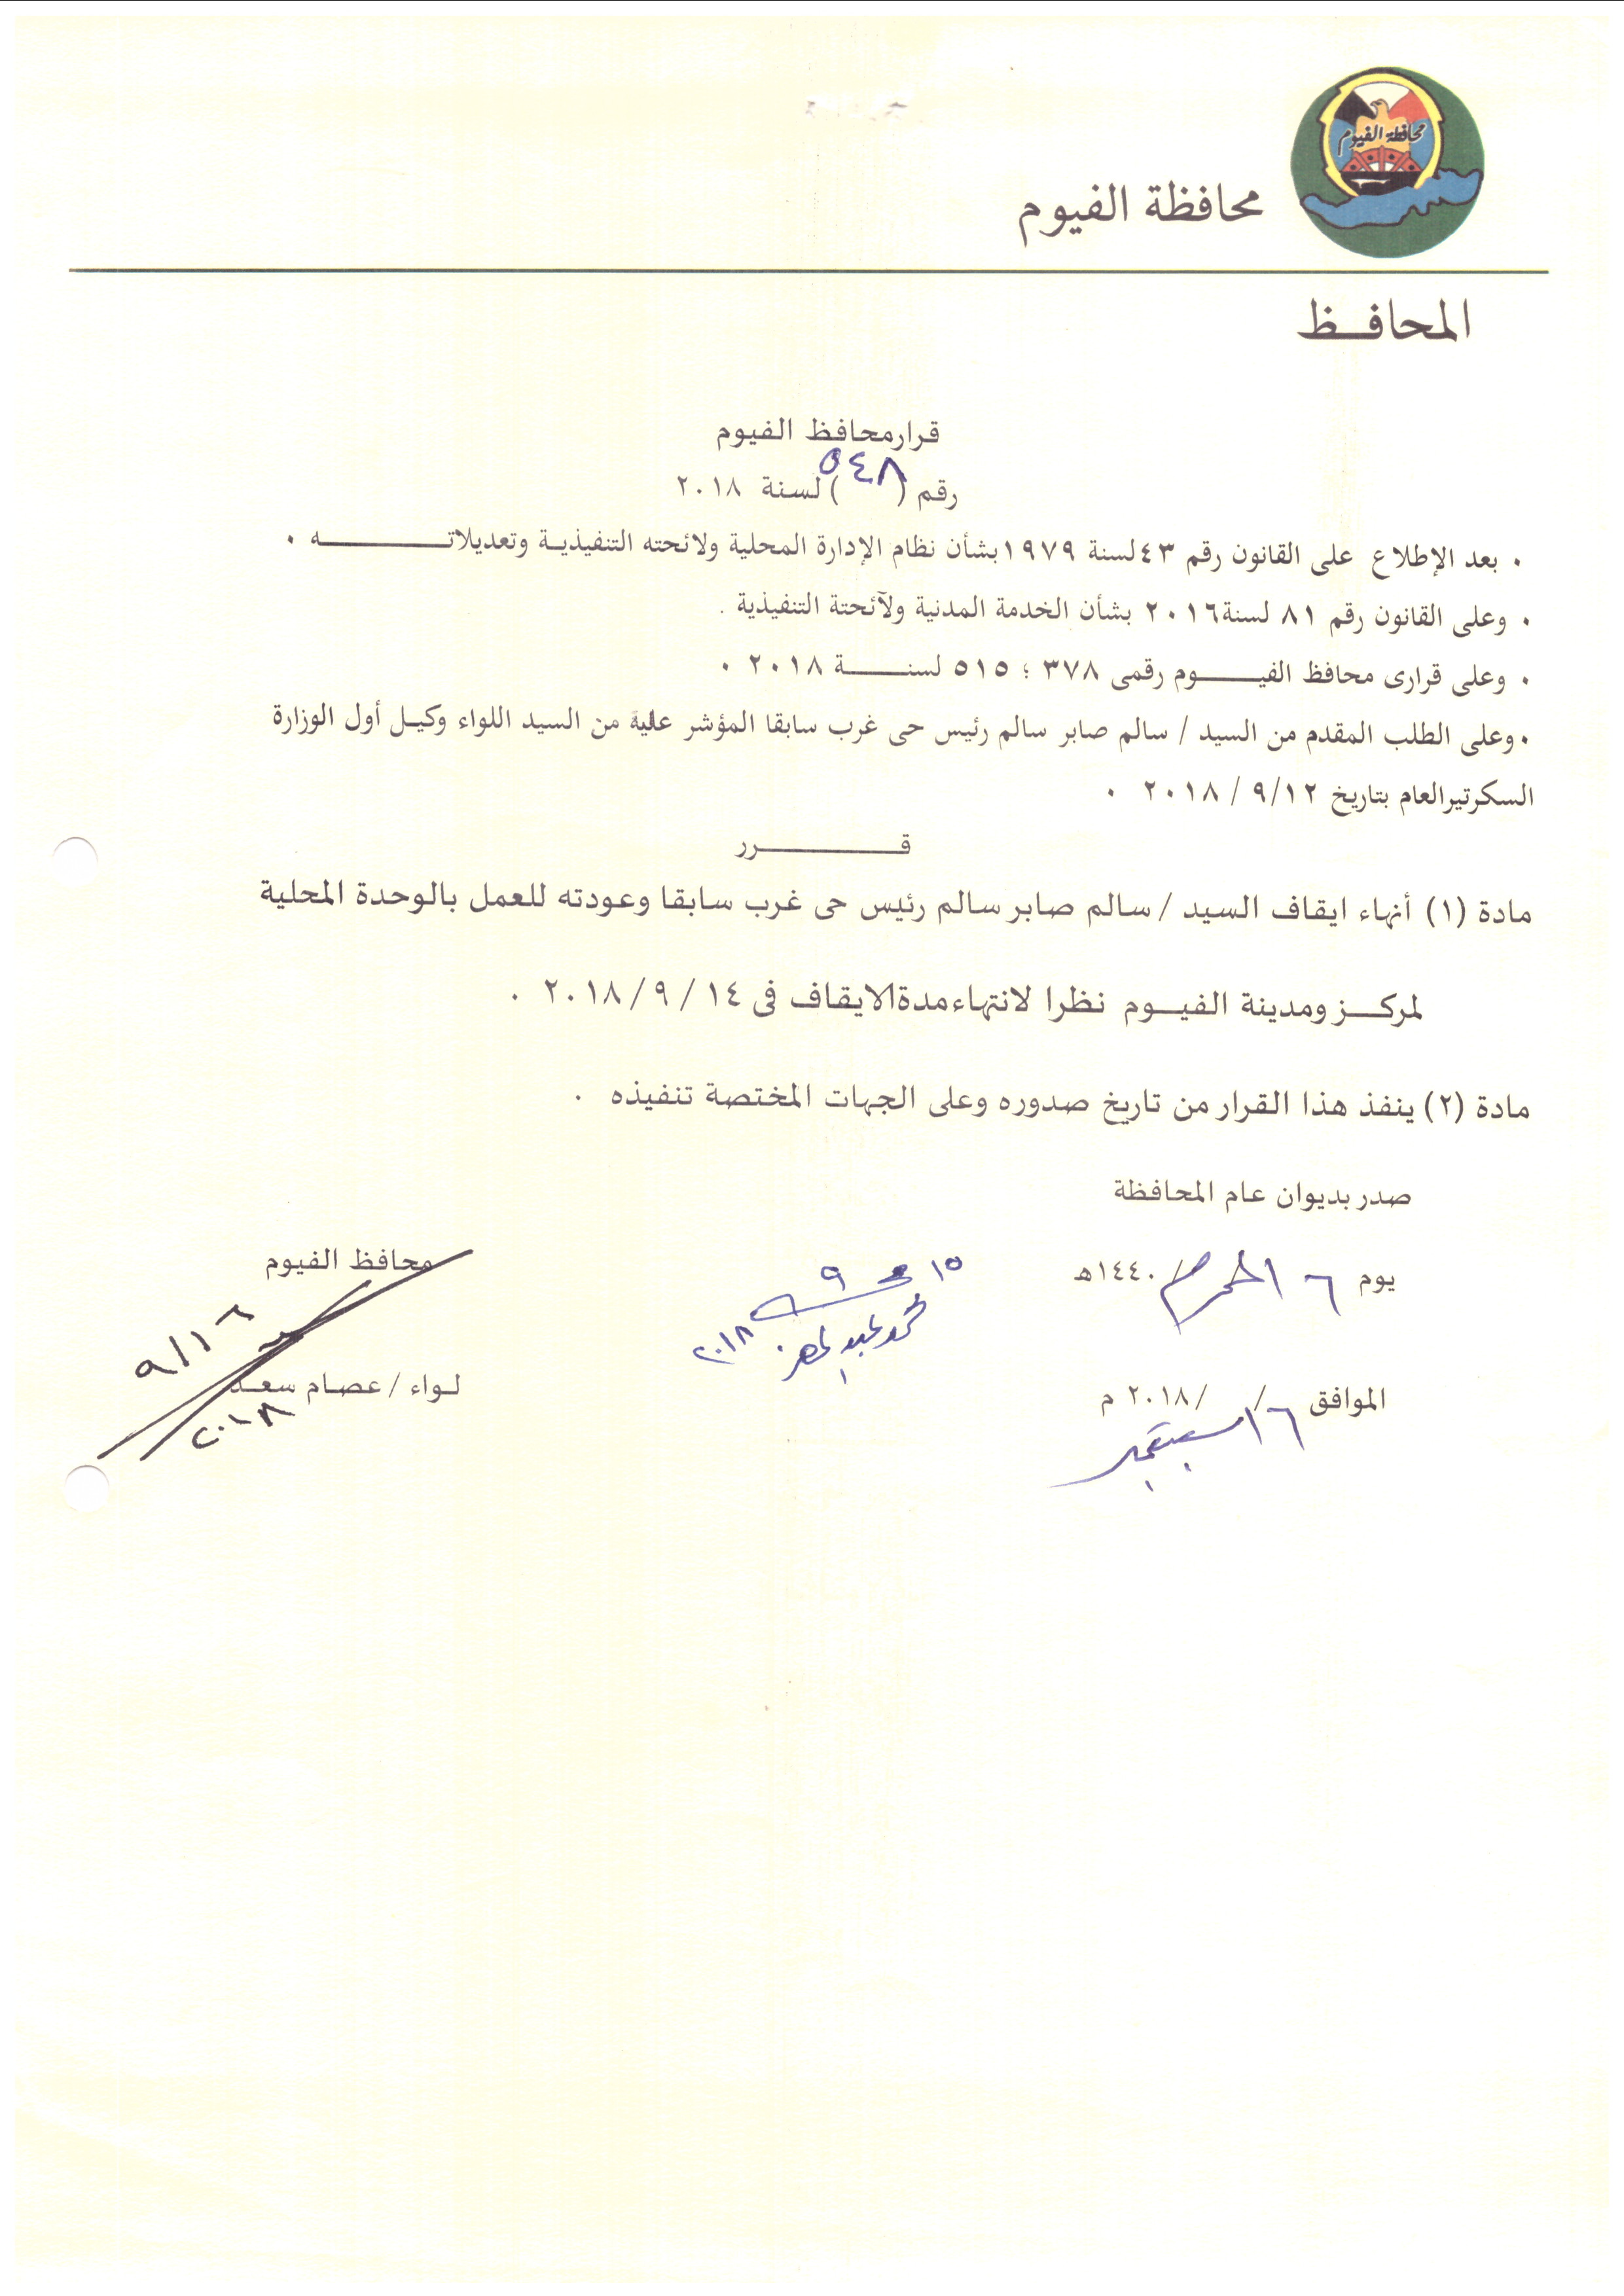 محافظة الفيوم
محافظة الفيوم
المحافــظ
قرارمحافظ الفيوم
رقم (٥٤٨) لسنة ٢٠١٨
٠ بعد الإطلاع على القانون رقم ٤٣لسنة ١٩٧٩بشأن نظام الإدارة المحلية ولائحته التنفيذيـة وتعديلاتــــــــــــه ٠
٠ وعلى القانون رقم ٨١ لسنة٢٠١٦ بشأن الخدمة المدنية ولآئحتة التنفيذية .
٠ وعلى قرارى محافظ الفيـــــوم رقمى ٣٧٨ ؛ ٥١٥ لسنـــــة ٢٠١٨ ٠
٠وعلى الطلب المقدم من السيد / سالم صابر سالم رئيس حى غرب سابقا المؤشر علية من السيد اللواء وكيـل أول الوزارة
السكرتيرالعام بتاريخ ٩/١٢ / ٢٠١٨ ٠
قـــــــــــــرر
مادة (١) أنهاء ايقاف السيد / سالم صابر سالم رئيس حى غرب سابقا وعودته للعمل بالوحدة المحلية
لمركـــز ومدينة الفيــوم نظرا لانتهاءمدةالايقاف فى ١٤ / ٩ / ٢٠١٨ ٠
مادة (٢) ينفذ هذا القرار من تاريخ صدوره وعلى الجهات المختصة تنفيذه ٠
صدر بديوان عام المحافظة
يوم ٦ المحرم / ١٤٤٠هـ
محافظ الفيوم
١٥ ٩
٢٠١٨
٩/١٦
٢٠١٨
لـواء / عصـام سعـد
الموافق / / ٢٠١٨ م
١٦ سبتمبر